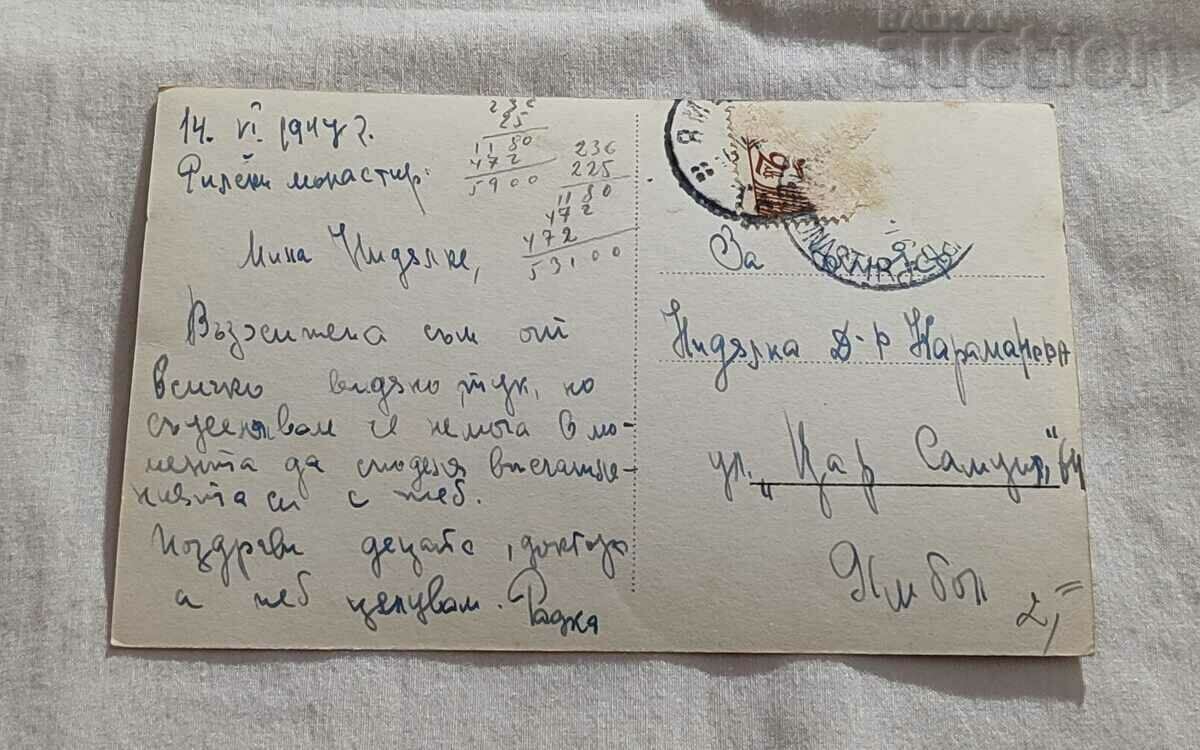 14. VI. 1947 г.
Рилски монастир.
236
25
1180
472
5900
236
225
1180
472
472
53100
Мила Нидялке,
Възхитена съм от
всичко видяно тук, но
съжелявам че немога в мо-
мента да споделя впечатле-
нията си с теб.
Поздрави децата, доктора
а теб целувам. Радка
За
Нидялка Д-р Карамарева
ул. „Цар Самуил" 64
Ямбол
2,=
ЯМ
BALKAN
auction